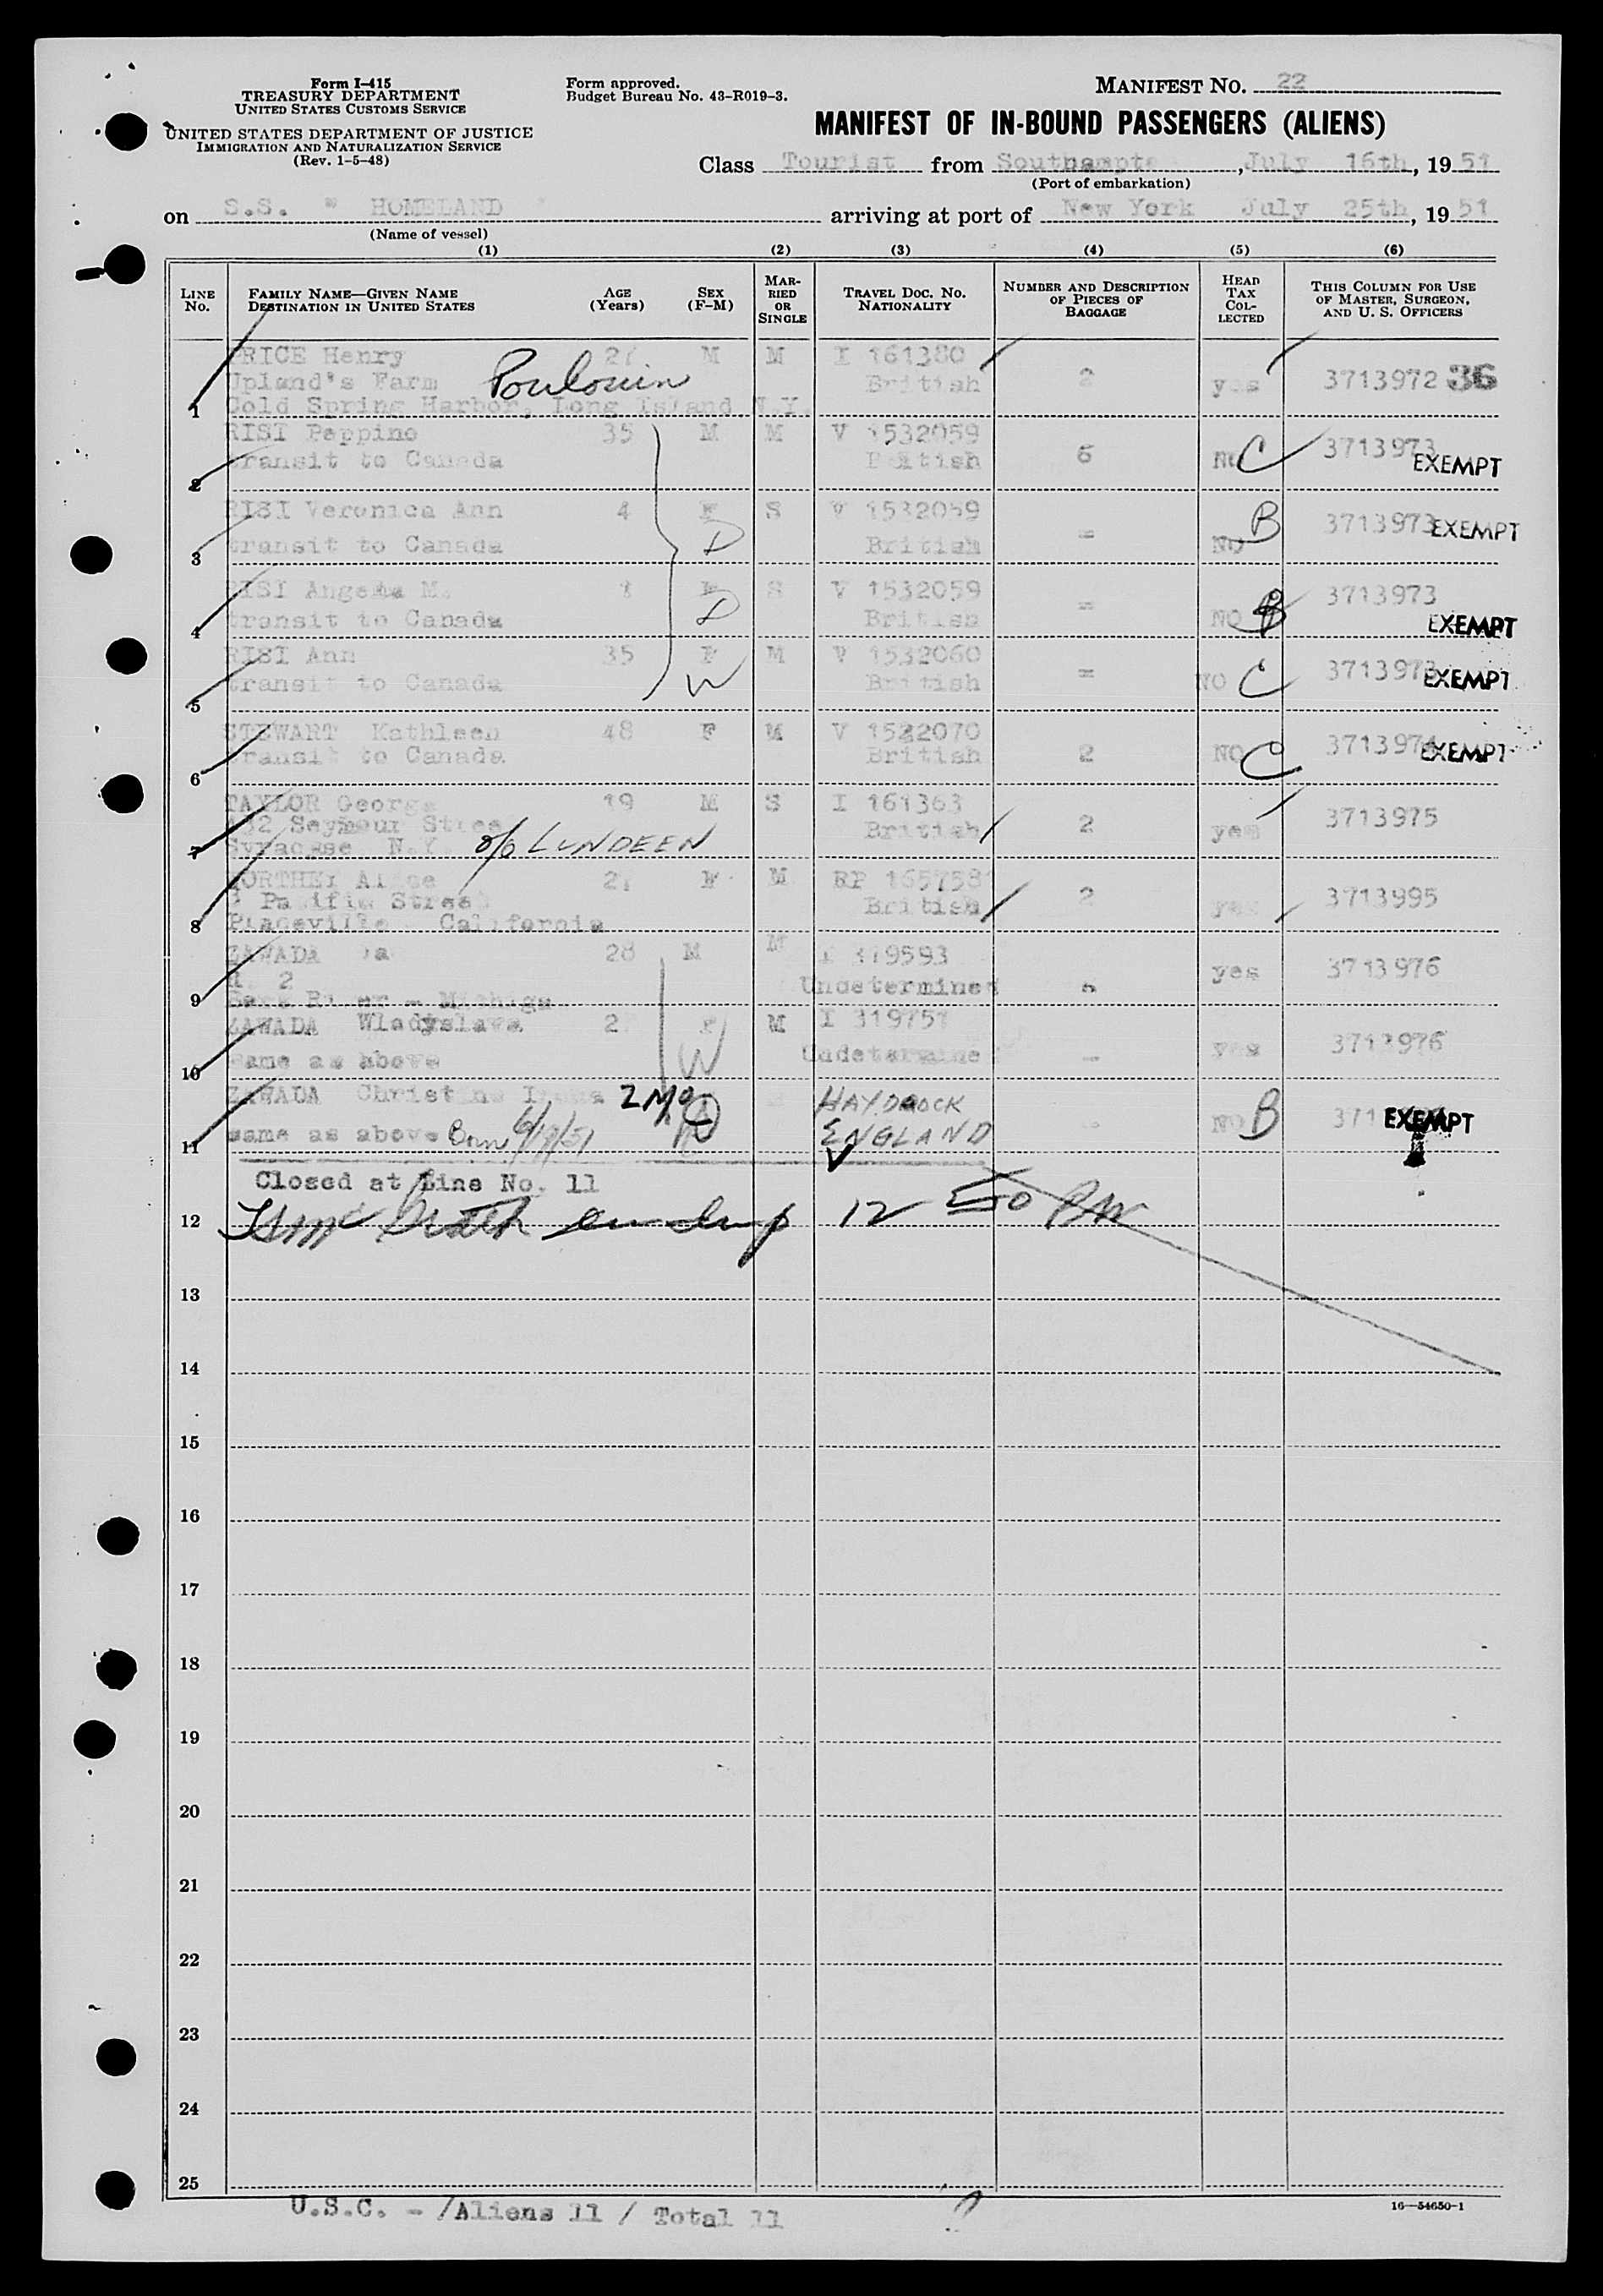 Form I-415
TREASURY DEPARTMENT
UNITED STATES CUSTOMS SERVICE
UNITED STATES DEPARTMENT OF JUSTICE
IMMIGRATION AND NATURALIZATION SERVICE
(Rev. 1-5-48)
Form approved.
Budget Bureau No. 43-R019-3.
MANIFEST NO. 22
MANIFEST OF IN-BOUND PASSENGERS (ALIENS)
Class Tourist from Southampto, July 16th, 1951
(Port of embarkation)
on S.S. " HOMELAND " arriving at port of New York July 25th, 1951
(Name of vessel)
(1) (2) (3) (4) (5) (6)
LINE No. FAMILY NAME—GIVEN NAME DESTINATION IN UNITED STATES AGE (Years) SEX (F-M) MARRIED OR SINGLE TRAVEL DOC. NO. NATIONALITY NUMBER AND DESCRIPTION OF PIECES OF BAGGAGE HEAD TAX COLLECTED THIS COLUMN FOR USE OF MASTER, SURGEON, AND U. S. OFFICERS
PRICE Henry 27 M M I 161380
Upland's Farm Poulouin British 2 yes 3713972 36
1 Cold Spring Harbor, Long Island N.Y.
RISI Peppino 35 M M V 1532059
2 transit to Canada British 6 NO C 3713973 EXEMPT
RISI Veronica Ann 4 F S V 1532059
3 transit to Canada D British = NO B 3713973 EXEMPT
RISI Angela M. 1 F S V 1532059
4 transit to Canada D British = NO B 3713973 EXEMPT
RISI Ann 35 F M V 1532060
5 transit to Canada W British = NO C 3713973 EXEMPT
STEWART Kathleen 48 F M V 1522070
6 transit to Canada British 2 NO C 3713974 EXEMPT
TAYLOR George 19 M S I 161363
132 Seymour Stree British 2 yes 3713975
7 Syracuse N.Y. c/o LUNDEEN
27 F M RP 165758
Pacific Street British 2 yes 3713995
8 Placeville California
ZAWADA 28 M M I 319593
R. 2 Undetermined yes 3713976
9 Bark River - Michiga
ZAWADA Wladyslawa 2 F M I 319751
10 same as above W Undetermine = yes 3713976
ZAWADA Christine 2 Mo HAYDOCK
11 same as above Born 6/19/51 ENGLAND NO B 371 EXEMPT
Closed at Line No. 11
12 12 50 PM
13
14
15
16
17
18
19
20
21
22
23
24
25
U.S.C. - /Aliens 11 / Total 11
16—54650-1